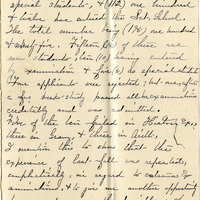 special students, & (112) one hundred
& twelve has entered the Sct. School,
The total number being (195) one hundred
& ninety-five. Fifteen (15) of these are
new students; ten (10) having entered
by examination & five (5) as special students
Four applicants were rejected; but one, after
a year's study passed all her examinations
creditably and was admitted.
Five of the ten failed in History Ex,
three in Gram, & three in Arith.
I mention this to show that the
experience of last fall was repeated,
emphatically, in regard to entrance
examinations, & to give me another opportunity